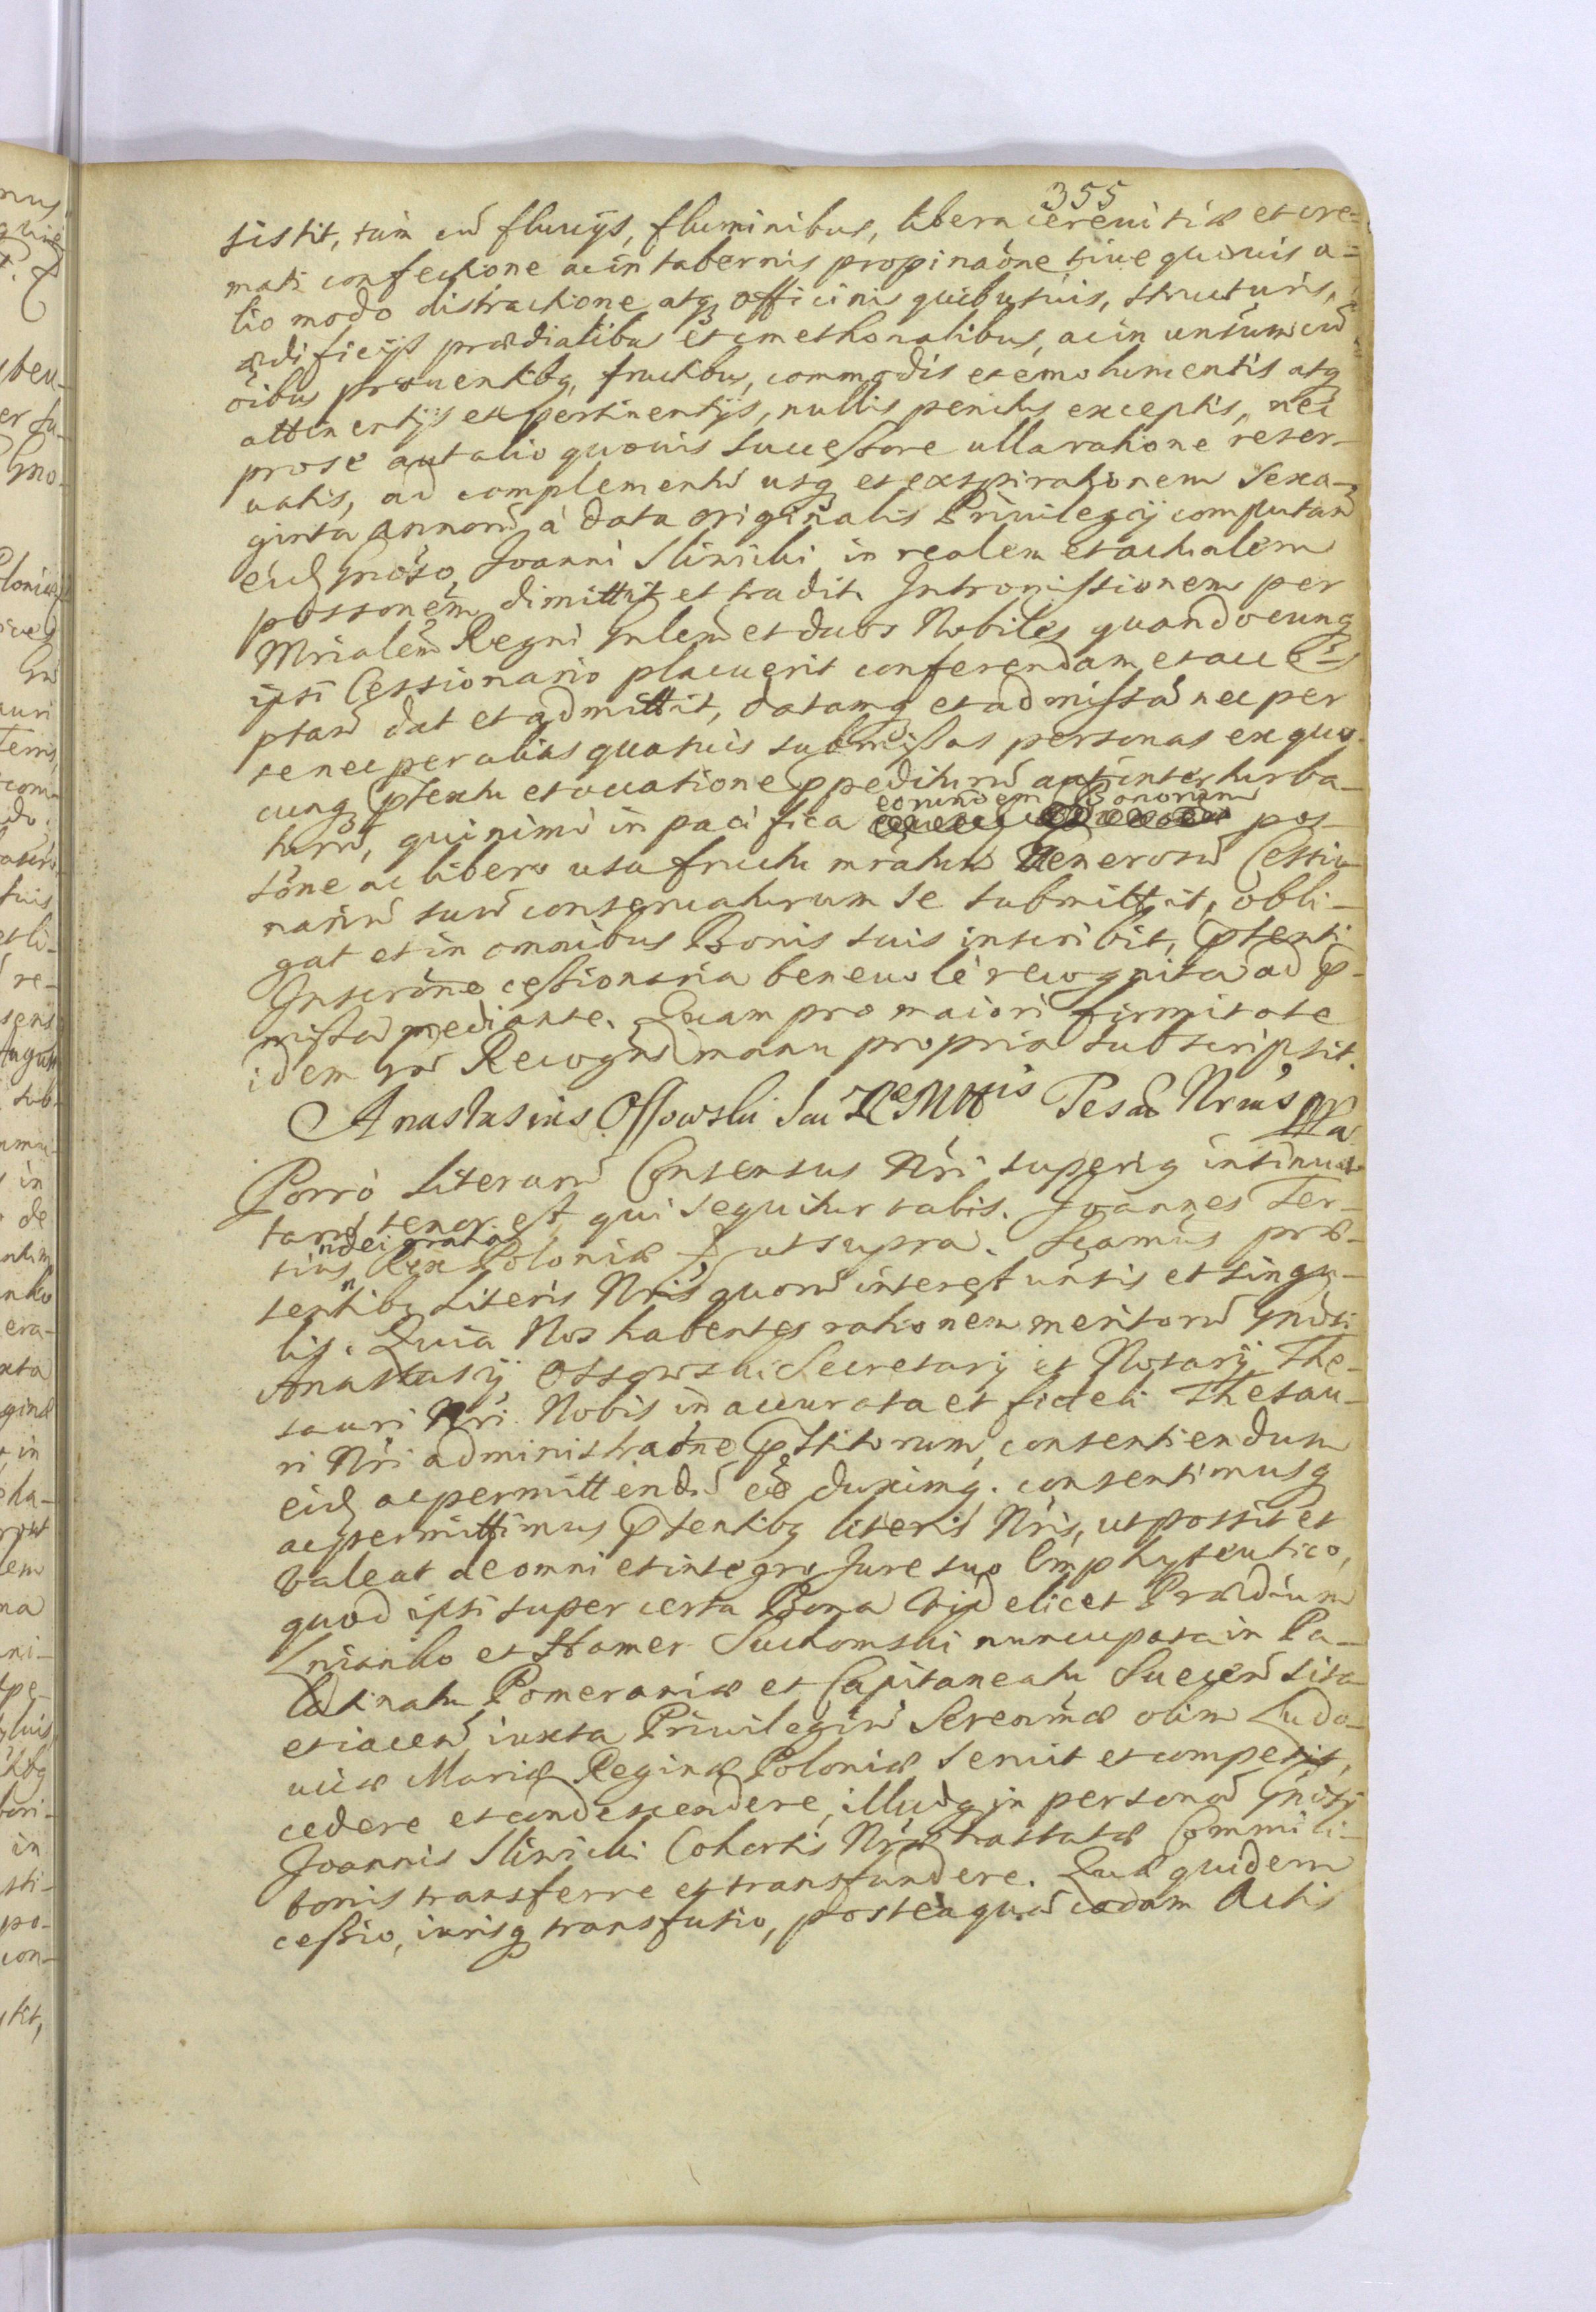 355
sistit, tùm cũ fluuijs, fluminibus, libera cereuisiæ et cre=
mati confectione ac in tabernis propinaõne siue quouis a=
lio modo distractione atq officinis quibusuis, structuris,
ædificijs prædialibus et cmethonalibus, ac in unsũm cũ
oĩbus prouentibq, fructibus, commodis et emolumentis atq
attinentijs et pertinentijs, nullis penitus exceptis, nec
pro se aut alio quouis successore ulla ratione reser-
uatis, ad complementũ usq et exspirationem Sexa-
ginta Annorũ à data originalis Priuilegij computan
eid Gnõso Joanni Sliwicki in realem et actualem
possonẽm dimittit et tradit. Intromissionem per
Mrialẽm Regni Gnlem et duos Nobiles quandocunq
ipsi Cessionario placuerit conferendam et acce
ptan dat et admittit, datamq et admissã nec per
se nec per alias quasuis submissas personas ex quo-
cunq ptextu et occatione ppediturũ aut inter turba-
turũ, quinimò in pacifica eorundem Bonorum pos-
sõne ac libero usufructu mratum Generosũ Cessio
nariũ suũ conseruaturum se submittit, obli-
gat et in omnibus Bonis suis inscribit, ptenti
Inscrõne cessionaria beneuolè recognita ad p-
missa mediante. Quam pro maiori firmitate
idem Gñs Recogñs manu propria subscripsit.
Anastasius Ossowski Sac Rae Mttis Tesau Nrius mpp
Porrò Literarũ Consensus Nri superiq insinua
tarũ tenor est, qui sequitur talis. Joannes Ter-
tius Dei gratia Rex Poloniæ ut supra. Scamùs præ-
sentibq Literis Nris quorũ interest unsis et singu-
lis. Quia Nos habentes rationem meritorũ Gnõsi
Anastasij Ossowski Secretarij et Notarij The-
sauri Nri Nobis in accurata et fideli Thesau-
ri Nri administraõne pstitorum, consentiendum
eid ac permittendũ eẽ duximq. consentimusq
ac permittimus ptentibq literis Nris, ut possit et
valeat de omni et integro Jure suo Emphyteutico,
quod ipsi super certa Bona videlicet Prædium
Lnianko et Hamer Suchomski nuncupata in Pa-
latinatu Pomeraniæ et Capitaneatu Suecen sita
et iacen iuxta Priuilegiũ Serenmæ olim Ludo-
uicæ Mariæ Reginæ Poloniæ seruit et competit,
cedere et condescendere, illudq in personã Gnõsi
Joannis Sliwicki Cohortis Nræ hastatæ Commili-
tonis transferre et transfundere. Quæ quidem
cessio, iurisq transfusio, posteaquã coram Actis